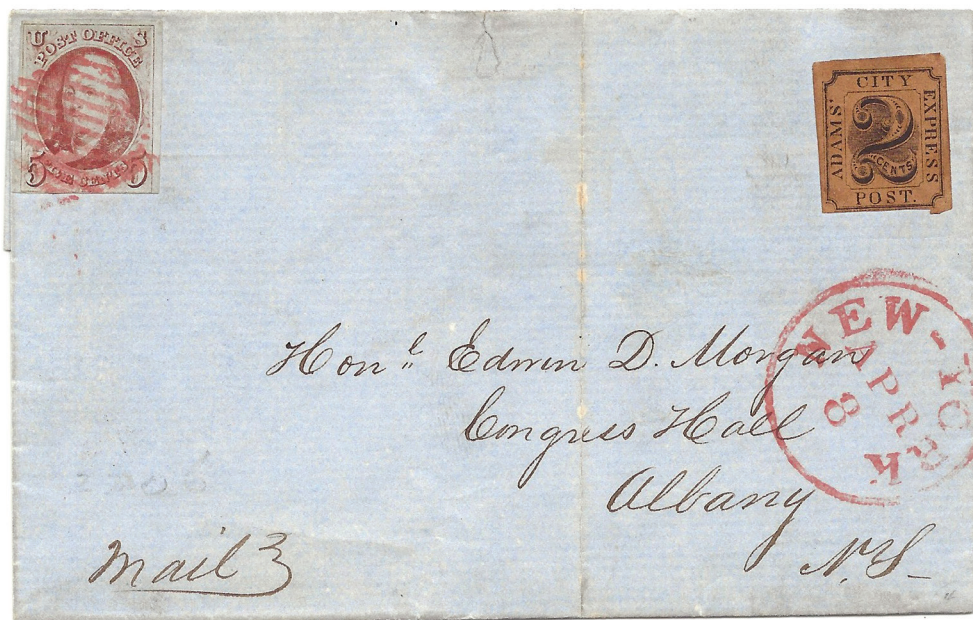 U S
POST OFFICE
5 FIVE CENTS 5
CITY
ADAMS' 2 EXPRESS
CENTS
POST.
NEW-YORK
APR
8
Honˡ Edwin D. Morgan
Congress Hall
Albany
N.Y.
Mail